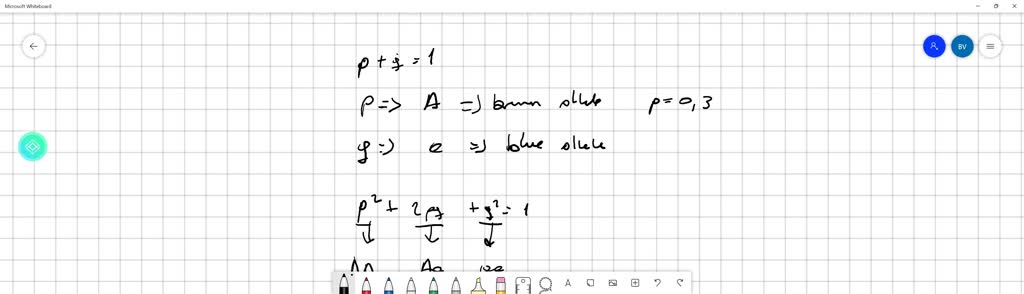 Microsoft Whiteboard
BV
p + q = 1
p => A => brown allele p = 0,3
q => a => blue allele
p² + 2pq + q² = 1
AA Aa aa
A